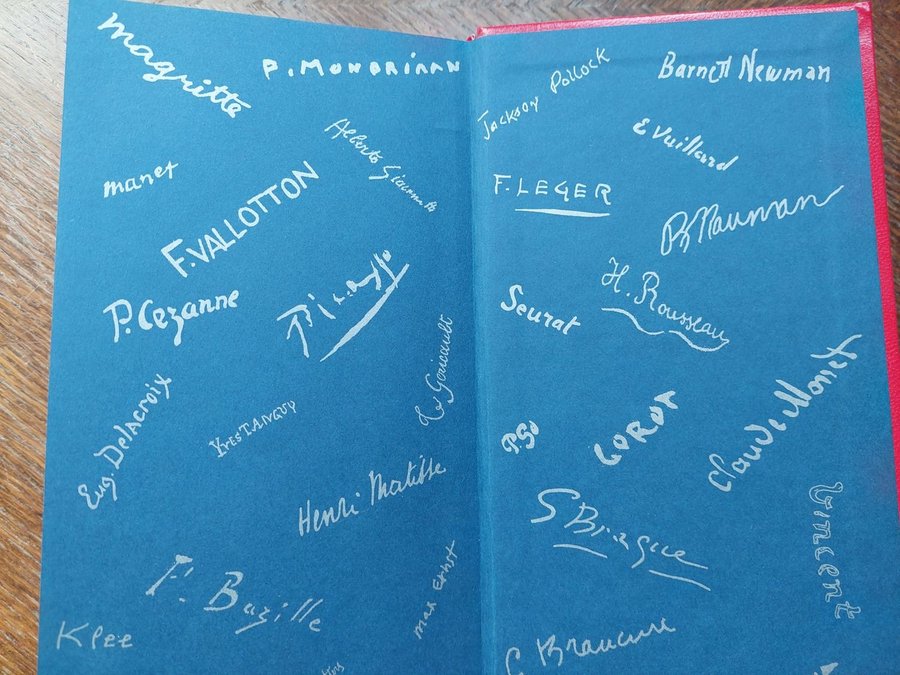 magritte
P. MONDRIAAN
manet
Alberto Giacometti
F. VALLOTTON
P. Cezanne
Picasso
Eug. Delacroix
YVES TANGUY
Henri Matisse
F. Bazille
max ernst
Klee
Jackson Pollock
Barnett Newman
E Vuillard
F. LEGER
B Nauman
H. Rousseau
Seurat
PGO
COROT
Claude Monet
G Braque
Vincent